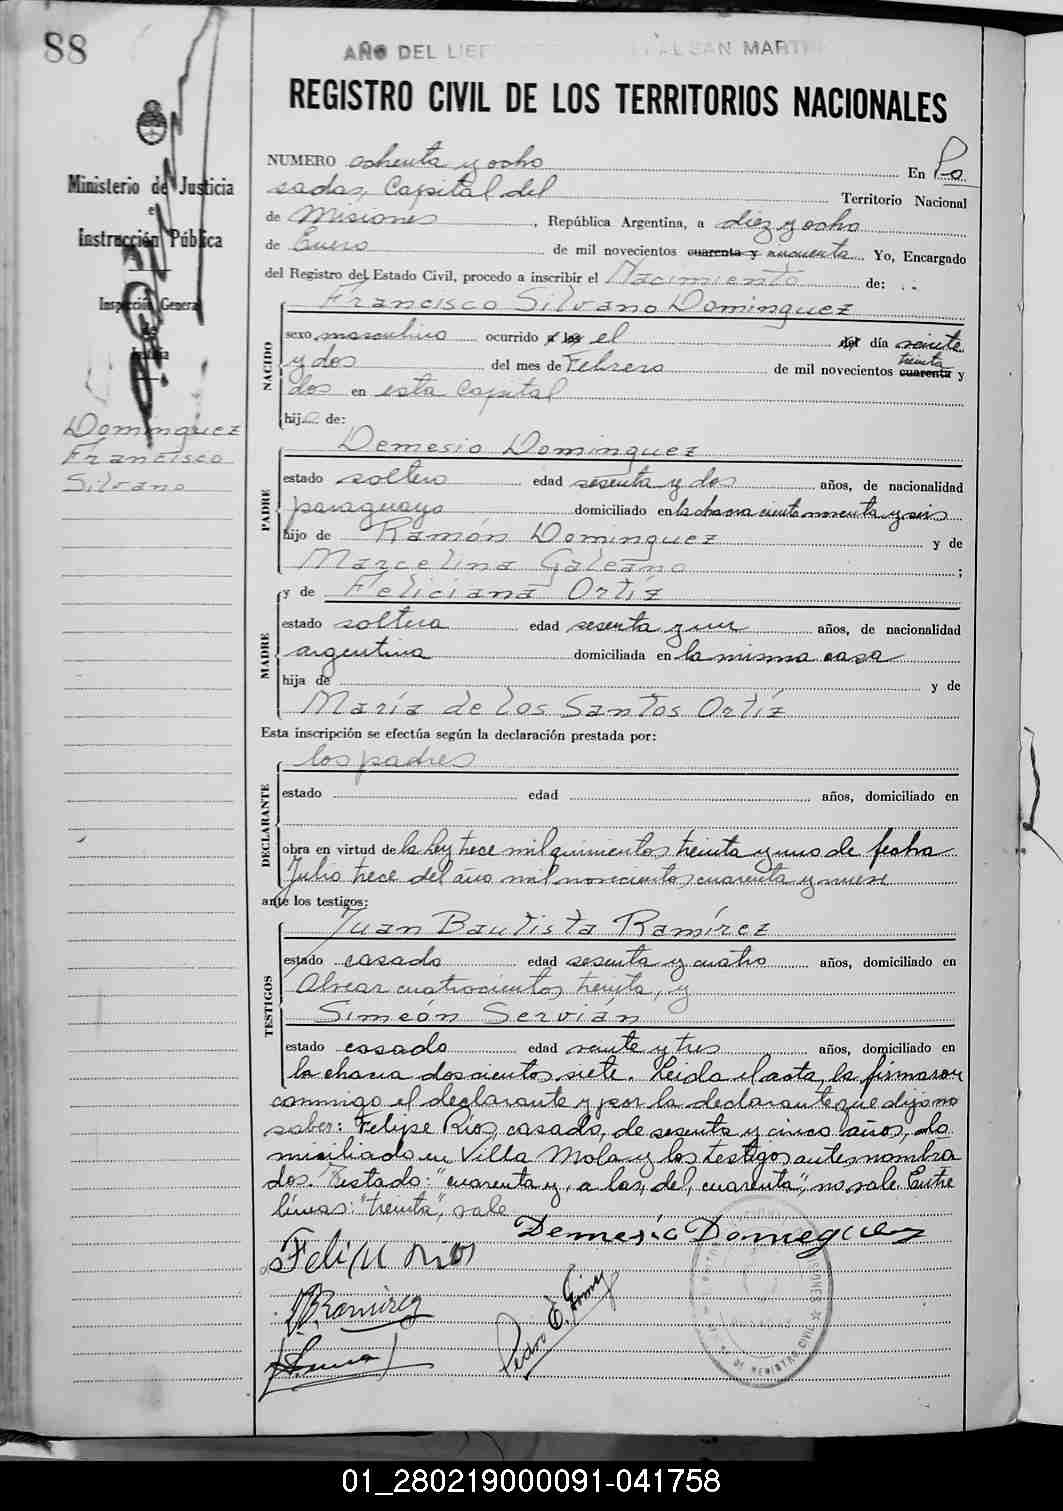 88
AÑO DEL LIBER AL SAN MARTIN
REGISTRO CIVIL DE LOS TERRITORIOS NACIONALES
Ministerio de Justicia
e
Instrucción Pública
Inspección General
de
Justicia
Dominguez
Francisco
Silvano
NUMERO ochenta y ocho En Po
sadas, Capital del Territorio Nacional
de Misiones, República Argentina, a diez y ocho
de Enero de mil novecientos cuarenta y cincuenta. Yo, Encargado
del Registro del Estado Civil, procedo a inscribir el Nacimiento de:
Francisco Silvano Dominguez
NACIDO
sexo masculino ocurrido a las el del día veinte
y dos del mes de Febrero de mil novecientos cuarenta y
treinta
dos en esta Capital
hijo de:
Demesio Dominguez
PADRE
estado soltero edad sesenta y dos años, de nacionalidad
paraguayo domiciliado en la chacra ciento noventa y seis
hijo de Ramón Dominguez y de
Marcelina Galeano ;
y de Feliciana Ortíz
MADRE
estado soltera edad sesenta y un años, de nacionalidad
argentina domiciliada en la misma casa
hija de y de
María de los Santos Ortíz
Esta inscripción se efectúa según la declaración prestada por:
los padres
DECLARANTE
estado edad años, domiciliado en
obra en virtud de la ley trece mil quinientos treinta y uno de fecha
Julio trece del año mil novecientos cuarenta y nueve
ante los testigos:
Juan Bautista Ramírez
TESTIGOS
estado casado edad sesenta y cuatro años, domiciliado en
Alvear cuatrocientos treinta, y
Simeón Servián
estado casado edad veinte y tres años, domiciliado en
la chacra doscientos siete. Leida el acta, la firmaron
conmigo el declarante y por la declarante que dijo no
saber: Felipe Rios, casado, de sesenta y cinco años, do
miciliado en Villa Mola y los testigos antes nombra
dos. Testado: "cuarenta y, a las, del, cuarenta", no vale. Entre
líneas: "treinta", vale
Demesio Domeguez
Felipe Rios
J.B. Ramirez
Pedro E.
REGISTRO CIVIL
MISIONES
01_280219000091-041758